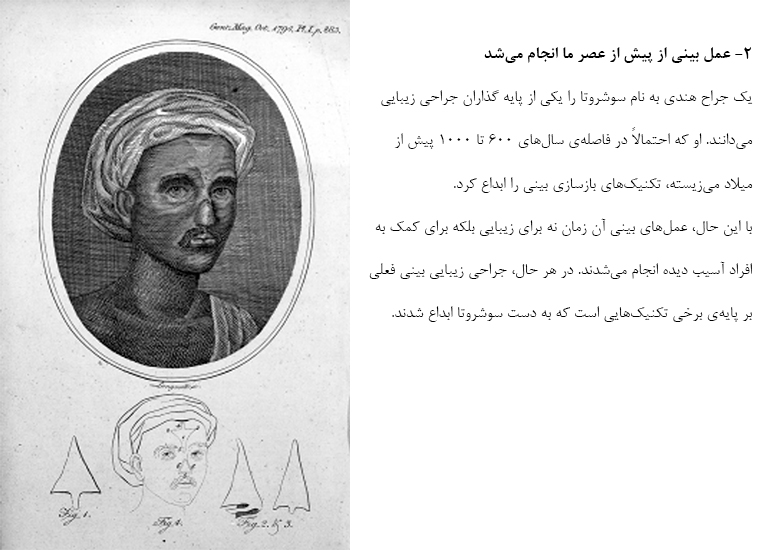 Gent. Mag. Oct. 1794. Pl. I. p. 883.
۲- عمل بینی از پیش از عصر ما انجام می‌شد
یک جراح هندی به نام سوشروتا را یکی از پایه گذاران جراحی زیبایی
می‌دانند. او که احتمالاً در فاصله‌ی سال‌های ۶۰۰ تا ۱۰۰۰ پیش از
میلاد می‌زیسته، تکنیک‌های بازسازی بینی را ابداع کرد.
با این حال، عمل‌های بینی آن زمان نه برای زیبایی بلکه برای کمک به
افراد آسیب دیده انجام می‌شدند. در هر حال، جراحی زیبایی بینی فعلی
بر پایه‌ی برخی تکنیک‌هایی است که به دست سوشروتا ابداع شدند.
Fig. 1.
Fig. 4.
Fig. 2. & 3.